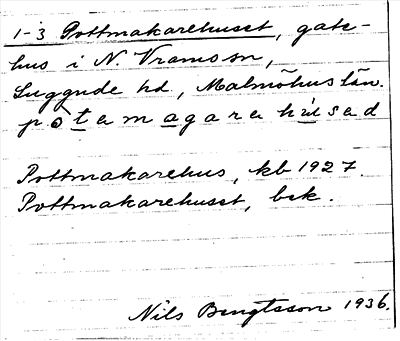 1-3 Pottmakarehuset, gate-
hus i N. Vramsn,
Luggude hd, Malmöhus län.
pòtamagarehùsad
Pottmakarehus, kb 1927.
Pottmakarehuset, bek.
Nils Bengtsson 1936.